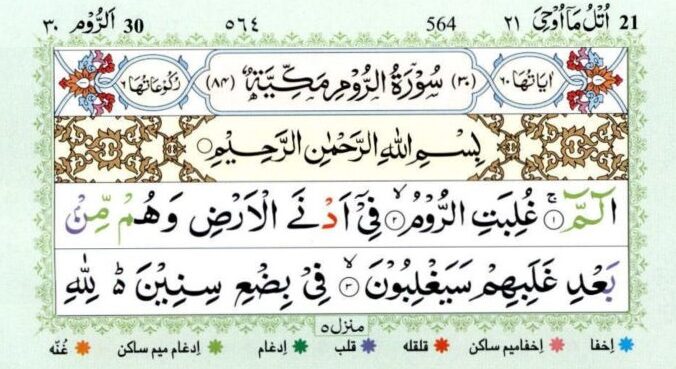 21 اُتْلُ مَاۤ اُوْحِیَ ۲۱ 564 ۵۶۴ 30 اَلرُّوْم ۳۰
اٰیَاتُهَا ۶۰ (۳۰) سُوْرَةُ الرُّوْمِ مَكِّیَّةٌ (۸۴) رُكُوْعَاتُهَا ۶
بِسْمِ اللّٰهِ الرَّحْمٰنِ الرَّحِیْمِ
الٓمّٓ ۚ﴿۱﴾ غُلِبَتِ الرُّوْمُ ۙ﴿۲﴾ فِیْۤ اَدْنَی الْاَرْضِ وَهُمْ مِّنْۢ
بَعْدِ غَلَبِهِمْ سَیَغْلِبُوْنَ ۙ﴿۳﴾ فِیْ بِضْعِ سِنِیْنَ ؕ۬ لِلّٰهِ
منزل ۵
اِخفا اِخفا میم ساکن قلقله قلب اِدغام اِدغام میم ساکن غُنّه